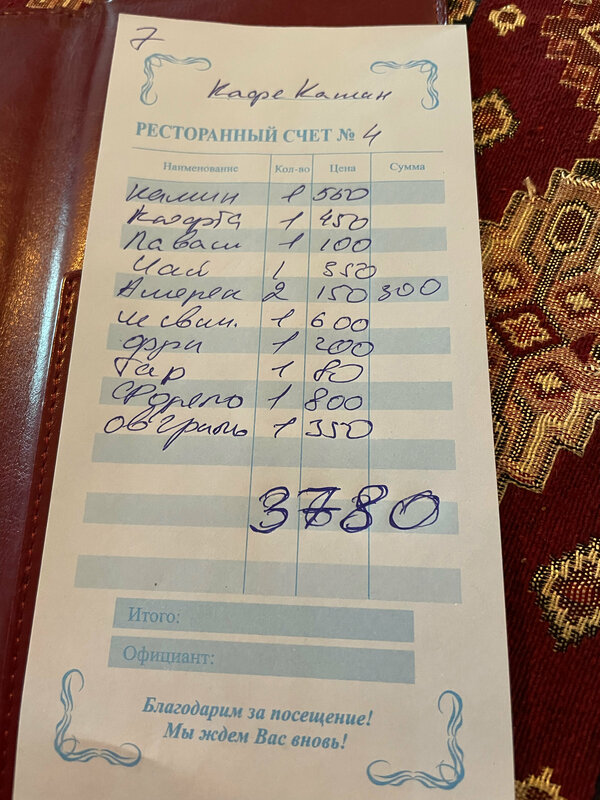 7
Кафе Камин
РЕСТОРАННЫЙ СЧЕТ № 4
Наименование Кол-во Цена Сумма
Камин 1 550
1 450
Лаваш 1 100
Чай 1 350
Америк 2 150 300
свин. 1 600
фри 1 200
гар 1 80
форель 1 800
ов гриль 1 350
3780
Итого:
Официант:
Благодарим за посещение!
Мы ждем Вас вновь!